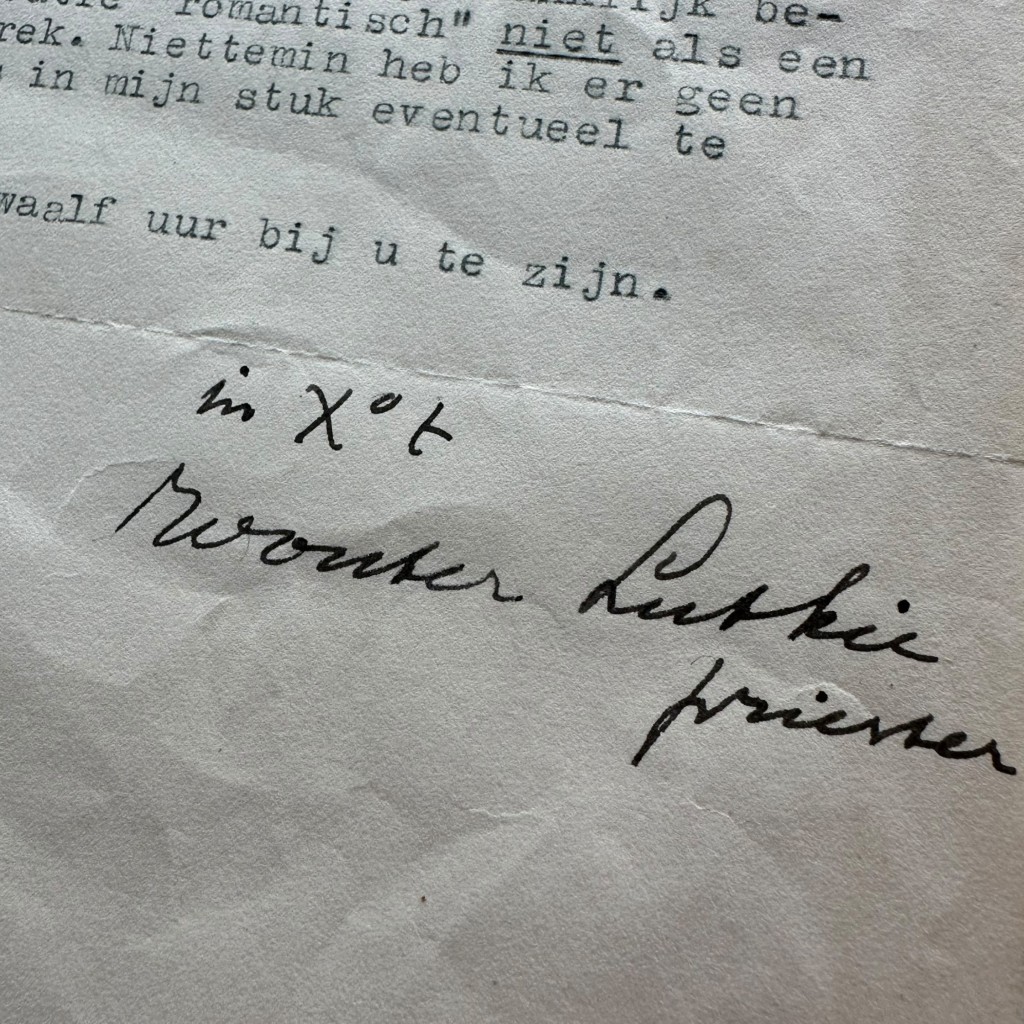 romantisch" niet als een
rek. Niettemin heb ik er geen
in mijn stuk eventueel te
waalf uur bij u te zijn.
in X°t
Wouter Lutkie
priester